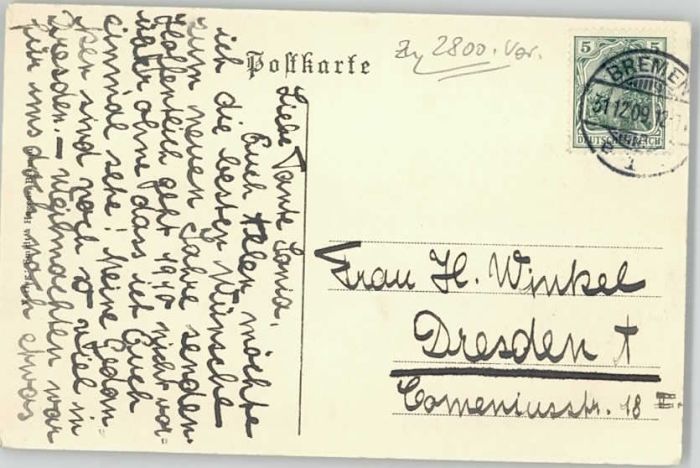 Postkarte
Zy 2800. Var.
5 5
BREMEN
31.12.09.12-
DEUTSCHES REICH
Liebe Tante Sonia,
Euch Allen möchte
ich die besten Wünsche
zum neuen Jahre senden.
Hoffentlich geht 1910 nicht vo-
rüber ohne dass ich Euch
einmal sehe! Meine Gedan-
ken sind noch so viel in
Dresden. – Weihnachten war
für uns doch noch etwas
Frau H. Winkel
Dresden A
Comeniusstr. 18 II.